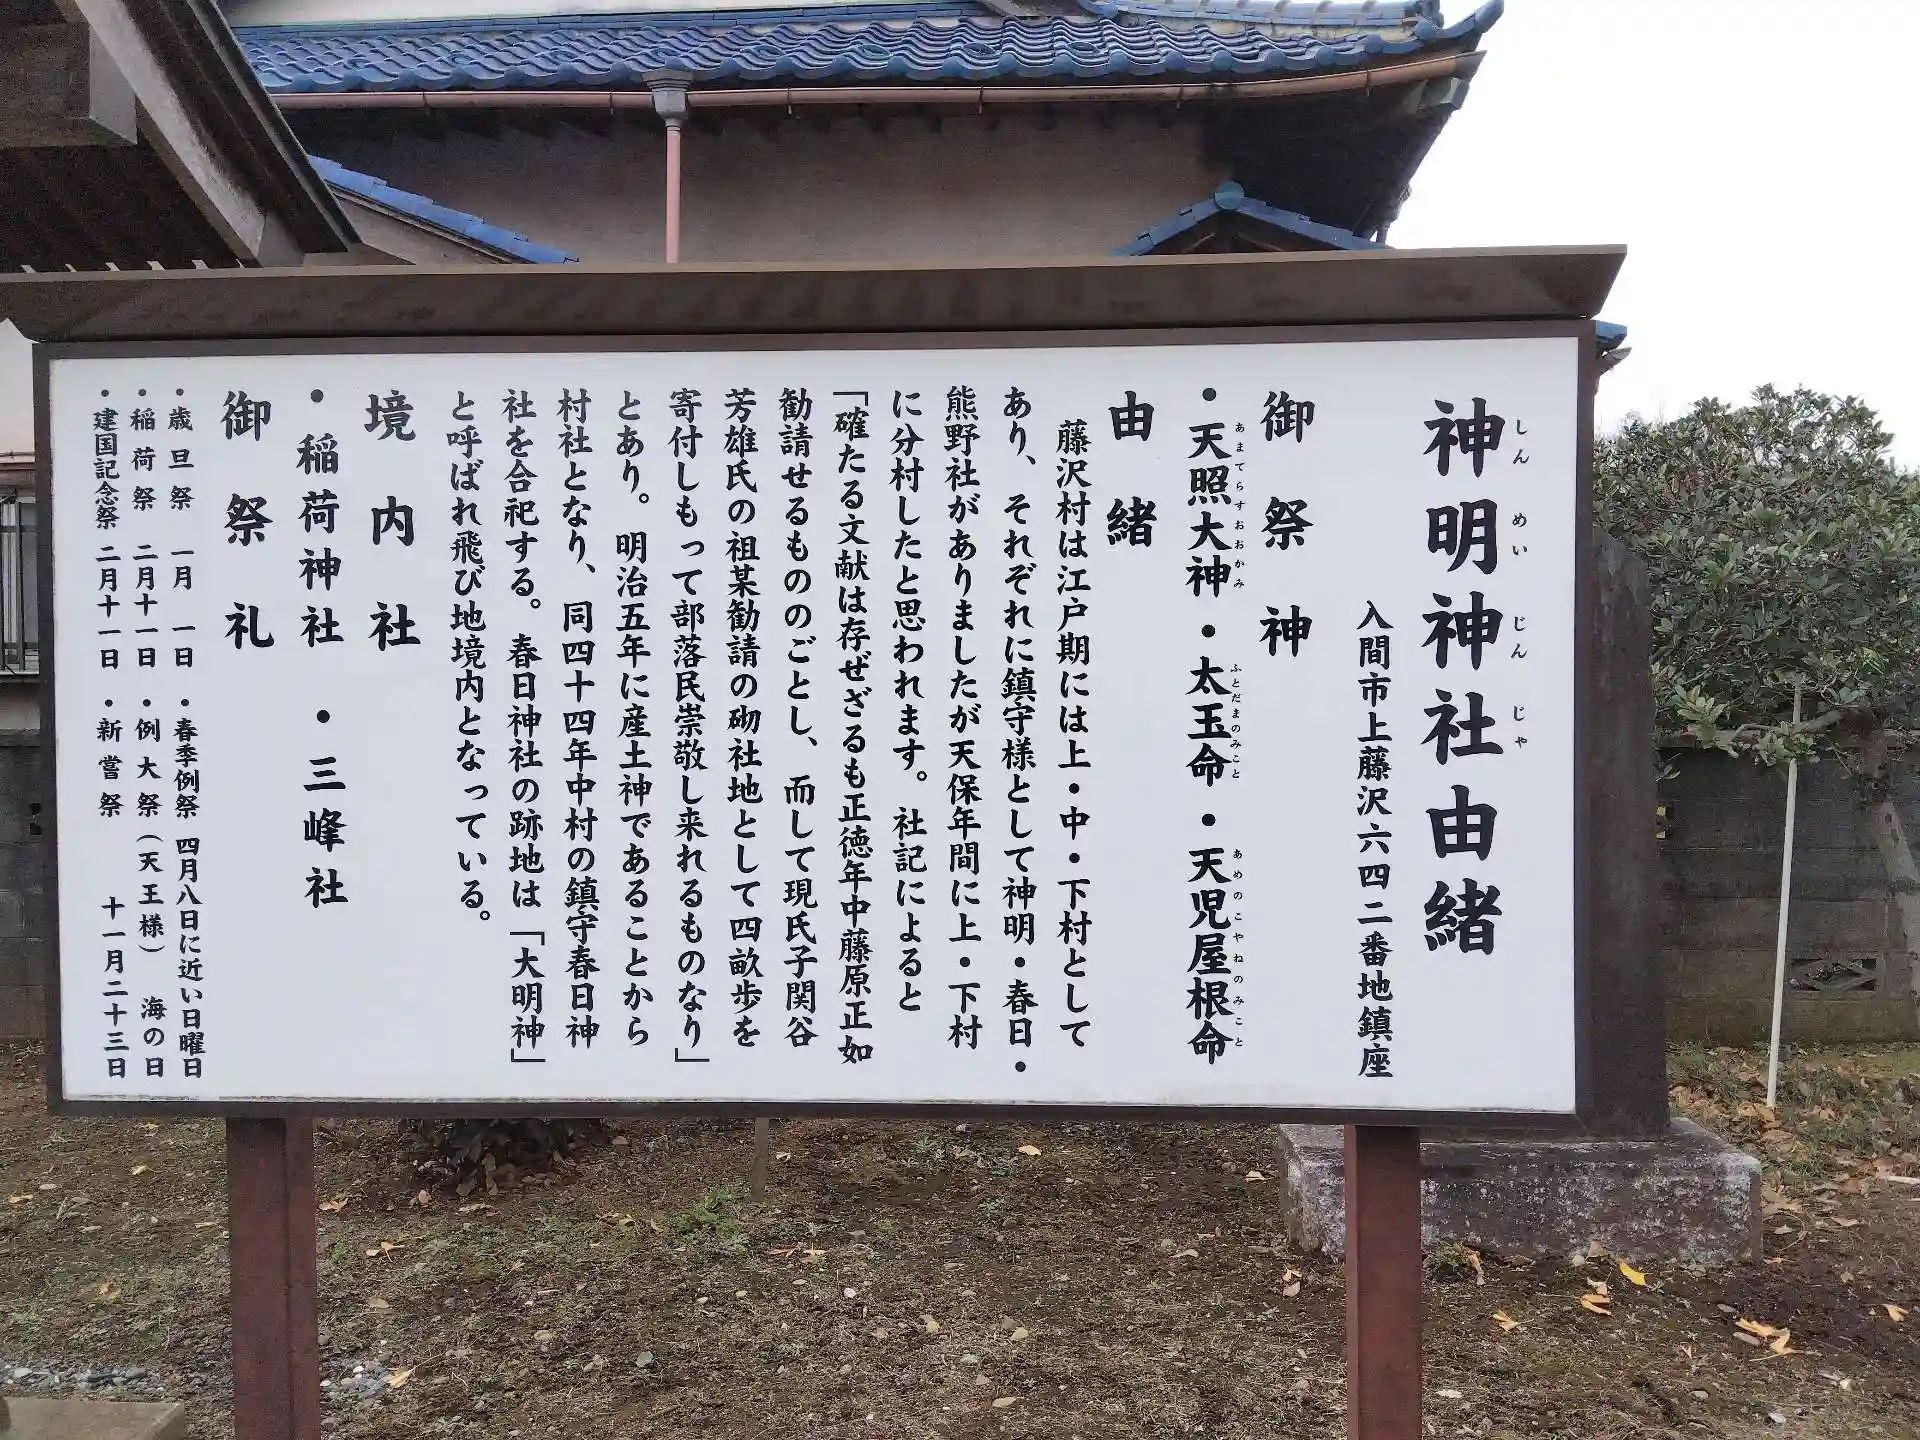 神明神社由緒
しんめいじんじゃ
入間市上藤沢六四二番地鎮座
御祭神
・天照大神・太玉命・天児屋根命
あまてらすおおかみ ふとだまのみこと あめのこやねのみこと
由緒
藤沢村は江戸期には上・中・下村として
あり、それぞれに鎮守様として神明・春日・
熊野社がありましたが天保年間に上・下村
に分村したと思われます。社記によると
「確たる文献は存ぜざるも正徳年中藤原正如
勧請せるもののごとし、而して現氏子関谷
芳雄氏の祖某勧請の砌社地として四畝歩を
寄付しもって部落民崇敬し来れるものなり」
とあり。明治五年に産土神であることから
村社となり、同四十四年中村の鎮守春日神
社を合祀する。春日神社の跡地は「大明神」
と呼ばれ飛び地境内となっている。
境内社
・稲荷神社・三峰社
御祭礼
・歳旦祭 一月一日・春季例祭 四月八日に近い日曜日
・稲荷祭 二月十一日・例大祭（天王様） 海の日
・建国記念祭 二月十一日・新嘗祭 十一月二十三日